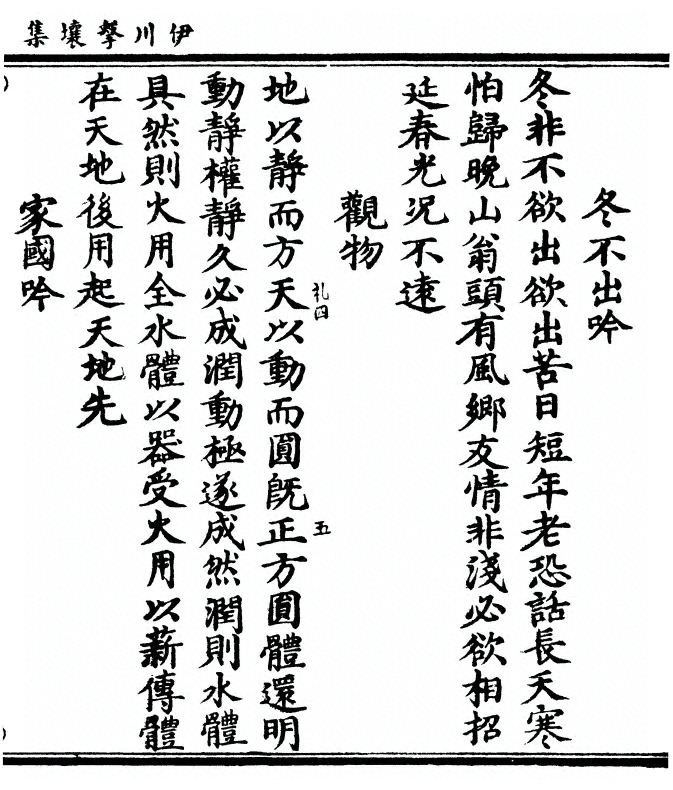 伊川擊壤集
冬不出吟
冬非不欲出欲出苦日短年老恐話長天寒
怕歸晚山翁頭有風鄉友情非淺必欲相招
延春光況不遠
觀物
地以靜而方天以動而圓旣正方圓體還明
礼四
五
動靜權靜久必成潤動極遂成然潤則水體
具然則火用全水體以器受火用以薪傳體
在天地後用起天地先
家國吟